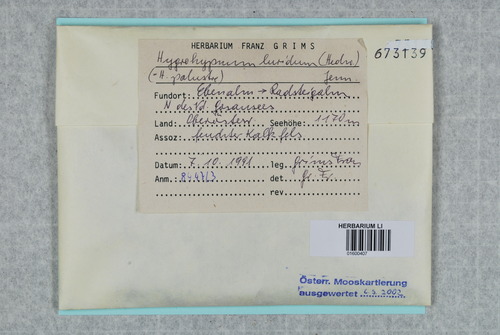 673139
HERBARIUM FRANZ GRIMS
Hygrohypnum luridum (Hedw.)
(=H. palustre) Jenn
Fundort: Ebenalm → Radsteigalm
N des Vd. Gosausees
Land: Oberösterr. Seehöhe: 1170m
Assoz: feuchter Kalkfels
Datum: 7.10.1991 leg. Grims Franz
Anm. 8447/3 det Gr. F.
rev.
HERBARIUM LI
01600407
Österr. Mooskartierung
ausgewertet 2002